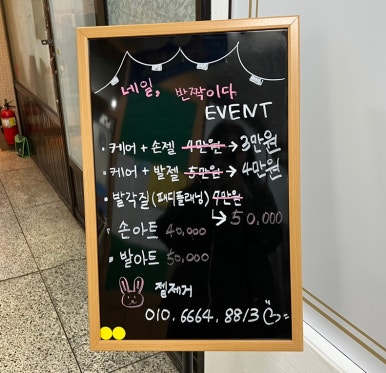 네일, 반짝이다
EVENT
· 케어 + 손젤 4만원 → 3만원
· 케어 + 발젤 5만원 → 4만원
· 발각질 (패디플래닝) 7만원
→ 50,000
· 손아트 40,000
· 발아트 50,000
젤제거
010. 6664. 8813